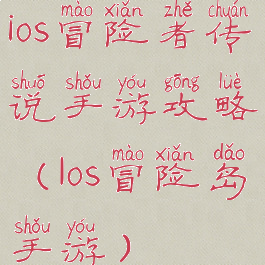 mào xiǎn zhě chuán
ios冒险者传
shuō shǒu yóu gōng lüè
说手游攻略
mào xiǎn dǎo
（ios冒险岛
shǒu yóu
手游）